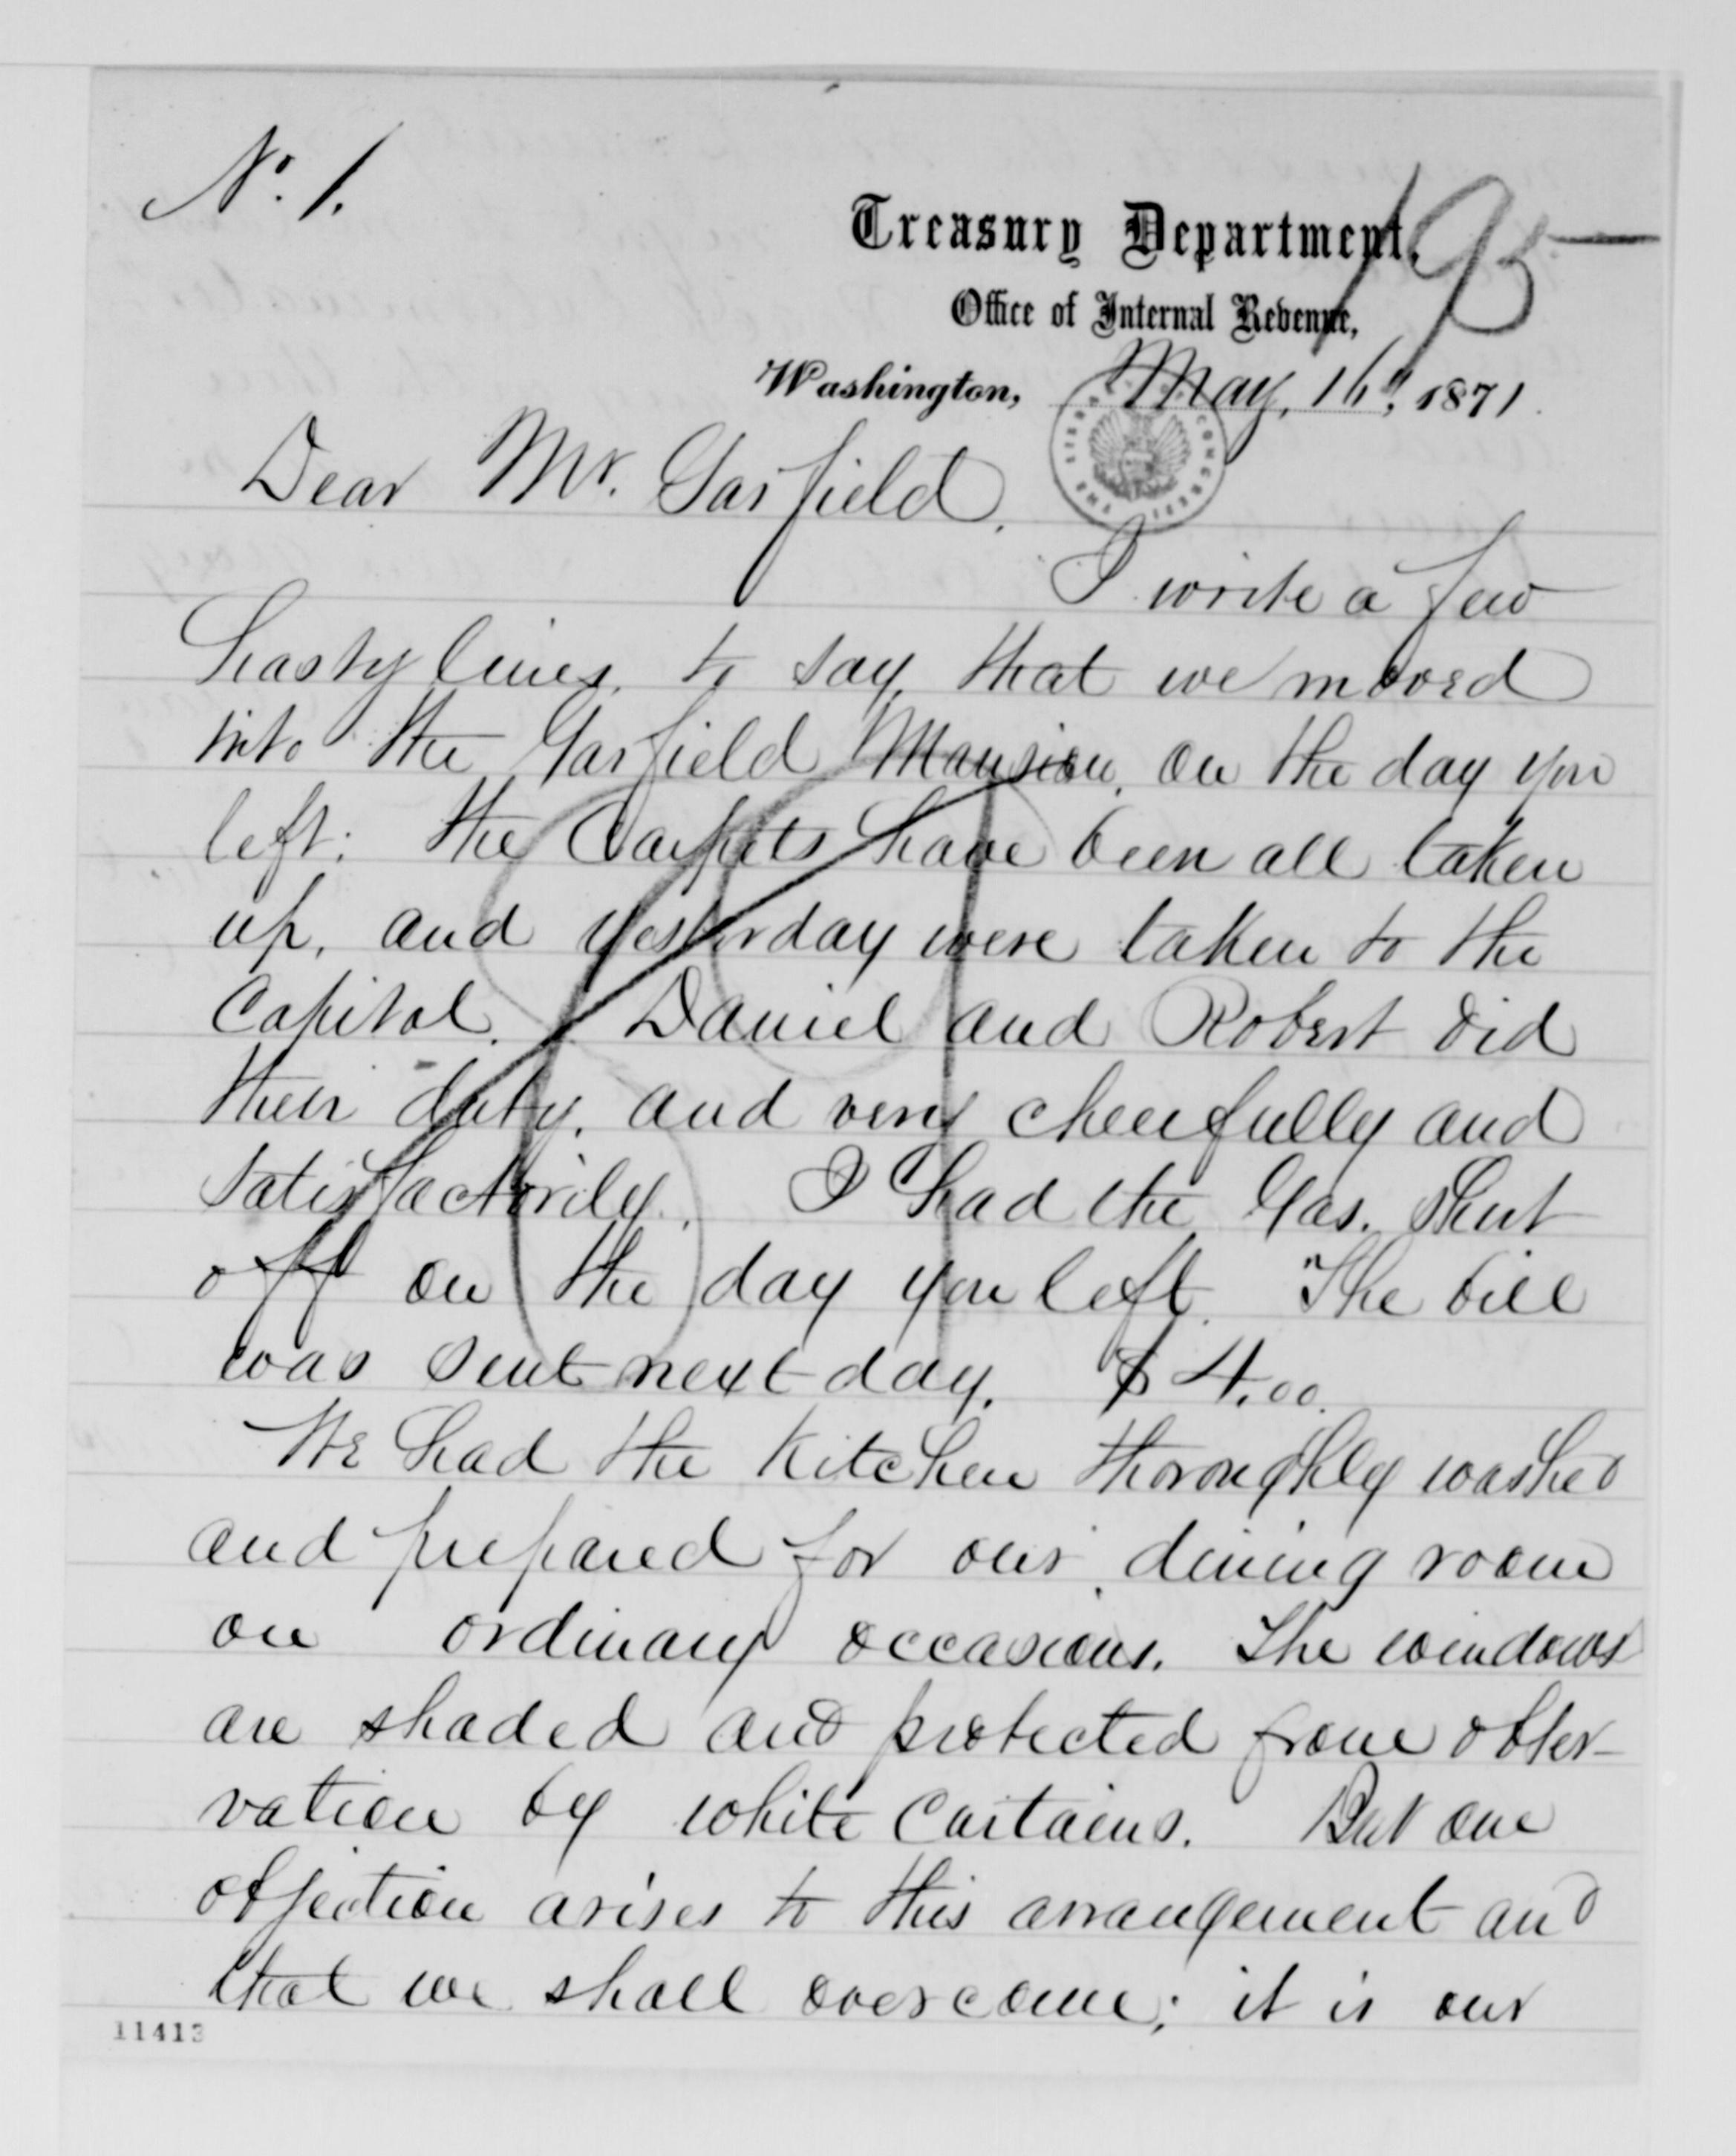 No. 1.
195
Treasury Department,
Office of Internal Revenue,
Washington, May, 16", 1871.
Dear Mr. Garfield.
I write a few
hasty lines, to say, that we moved
into the Garfield Mansion, on the day you
left: the Carpets have been all taken
up, and yesterday were taken to the
Capitol. Daniel and Robert did
their duty, and very cheerfully and
satisfactorily. I had the Gas. shut
off on the day you left. The bill
was sent next day. $4.00.
We had the Kitchen thoroughly washed
and prepared for our dining room
on ordinary occasions. The windows
are shaded and protected from obser-
vation by white curtains. But one
objection arises to this arrangement and
that we shall overcome; it is our
11413